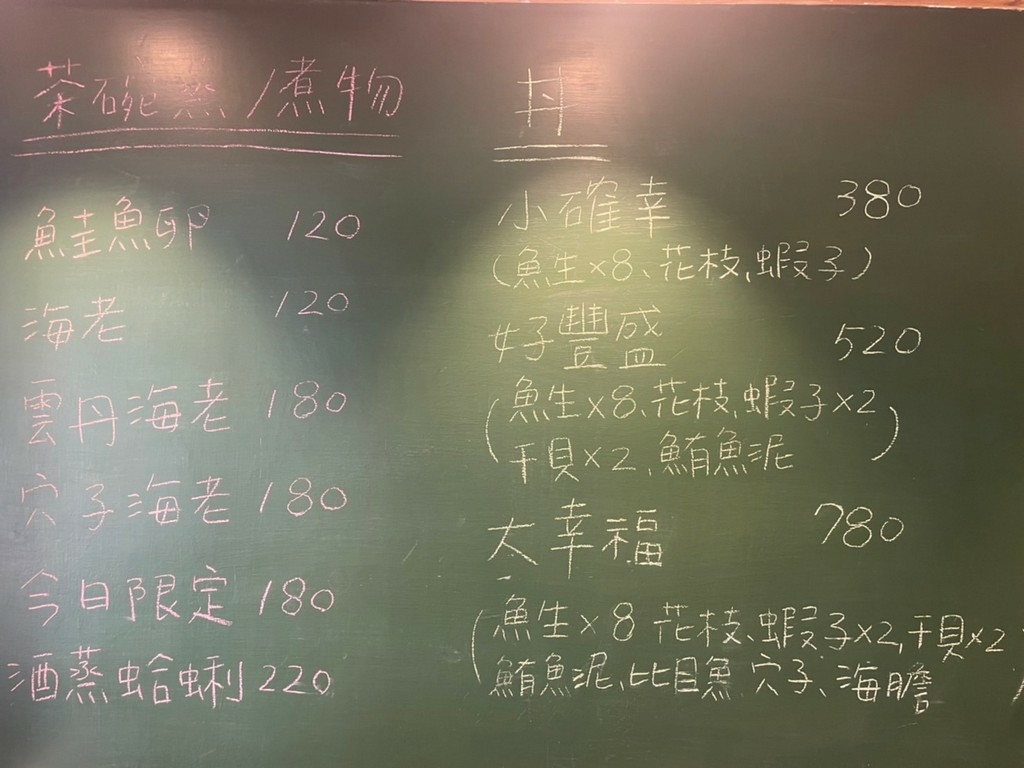 茶碗蒸/煮物
鮭魚卵 120
海老 120
雲丹海老 180
穴子海老 180
今日限定 180
酒蒸蛤蜊 220
丼
小確幸 380
(魚生×8、花枝、蝦子)
好豐盛 520
(魚生×8、花枝、蝦子×2
干貝×2、鮪魚泥)
大幸福 780
(魚生×8 花枝、蝦子×2,干貝×2
鮪魚泥、比目魚 穴子、海膽)